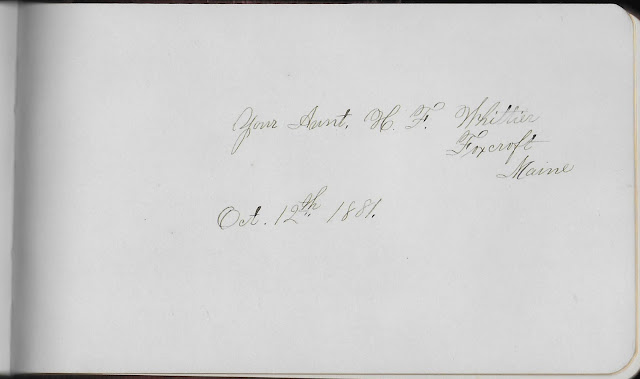 Your Aunt. H. F. Whittier
Foxcroft
Maine
Oct. 12th 1881.